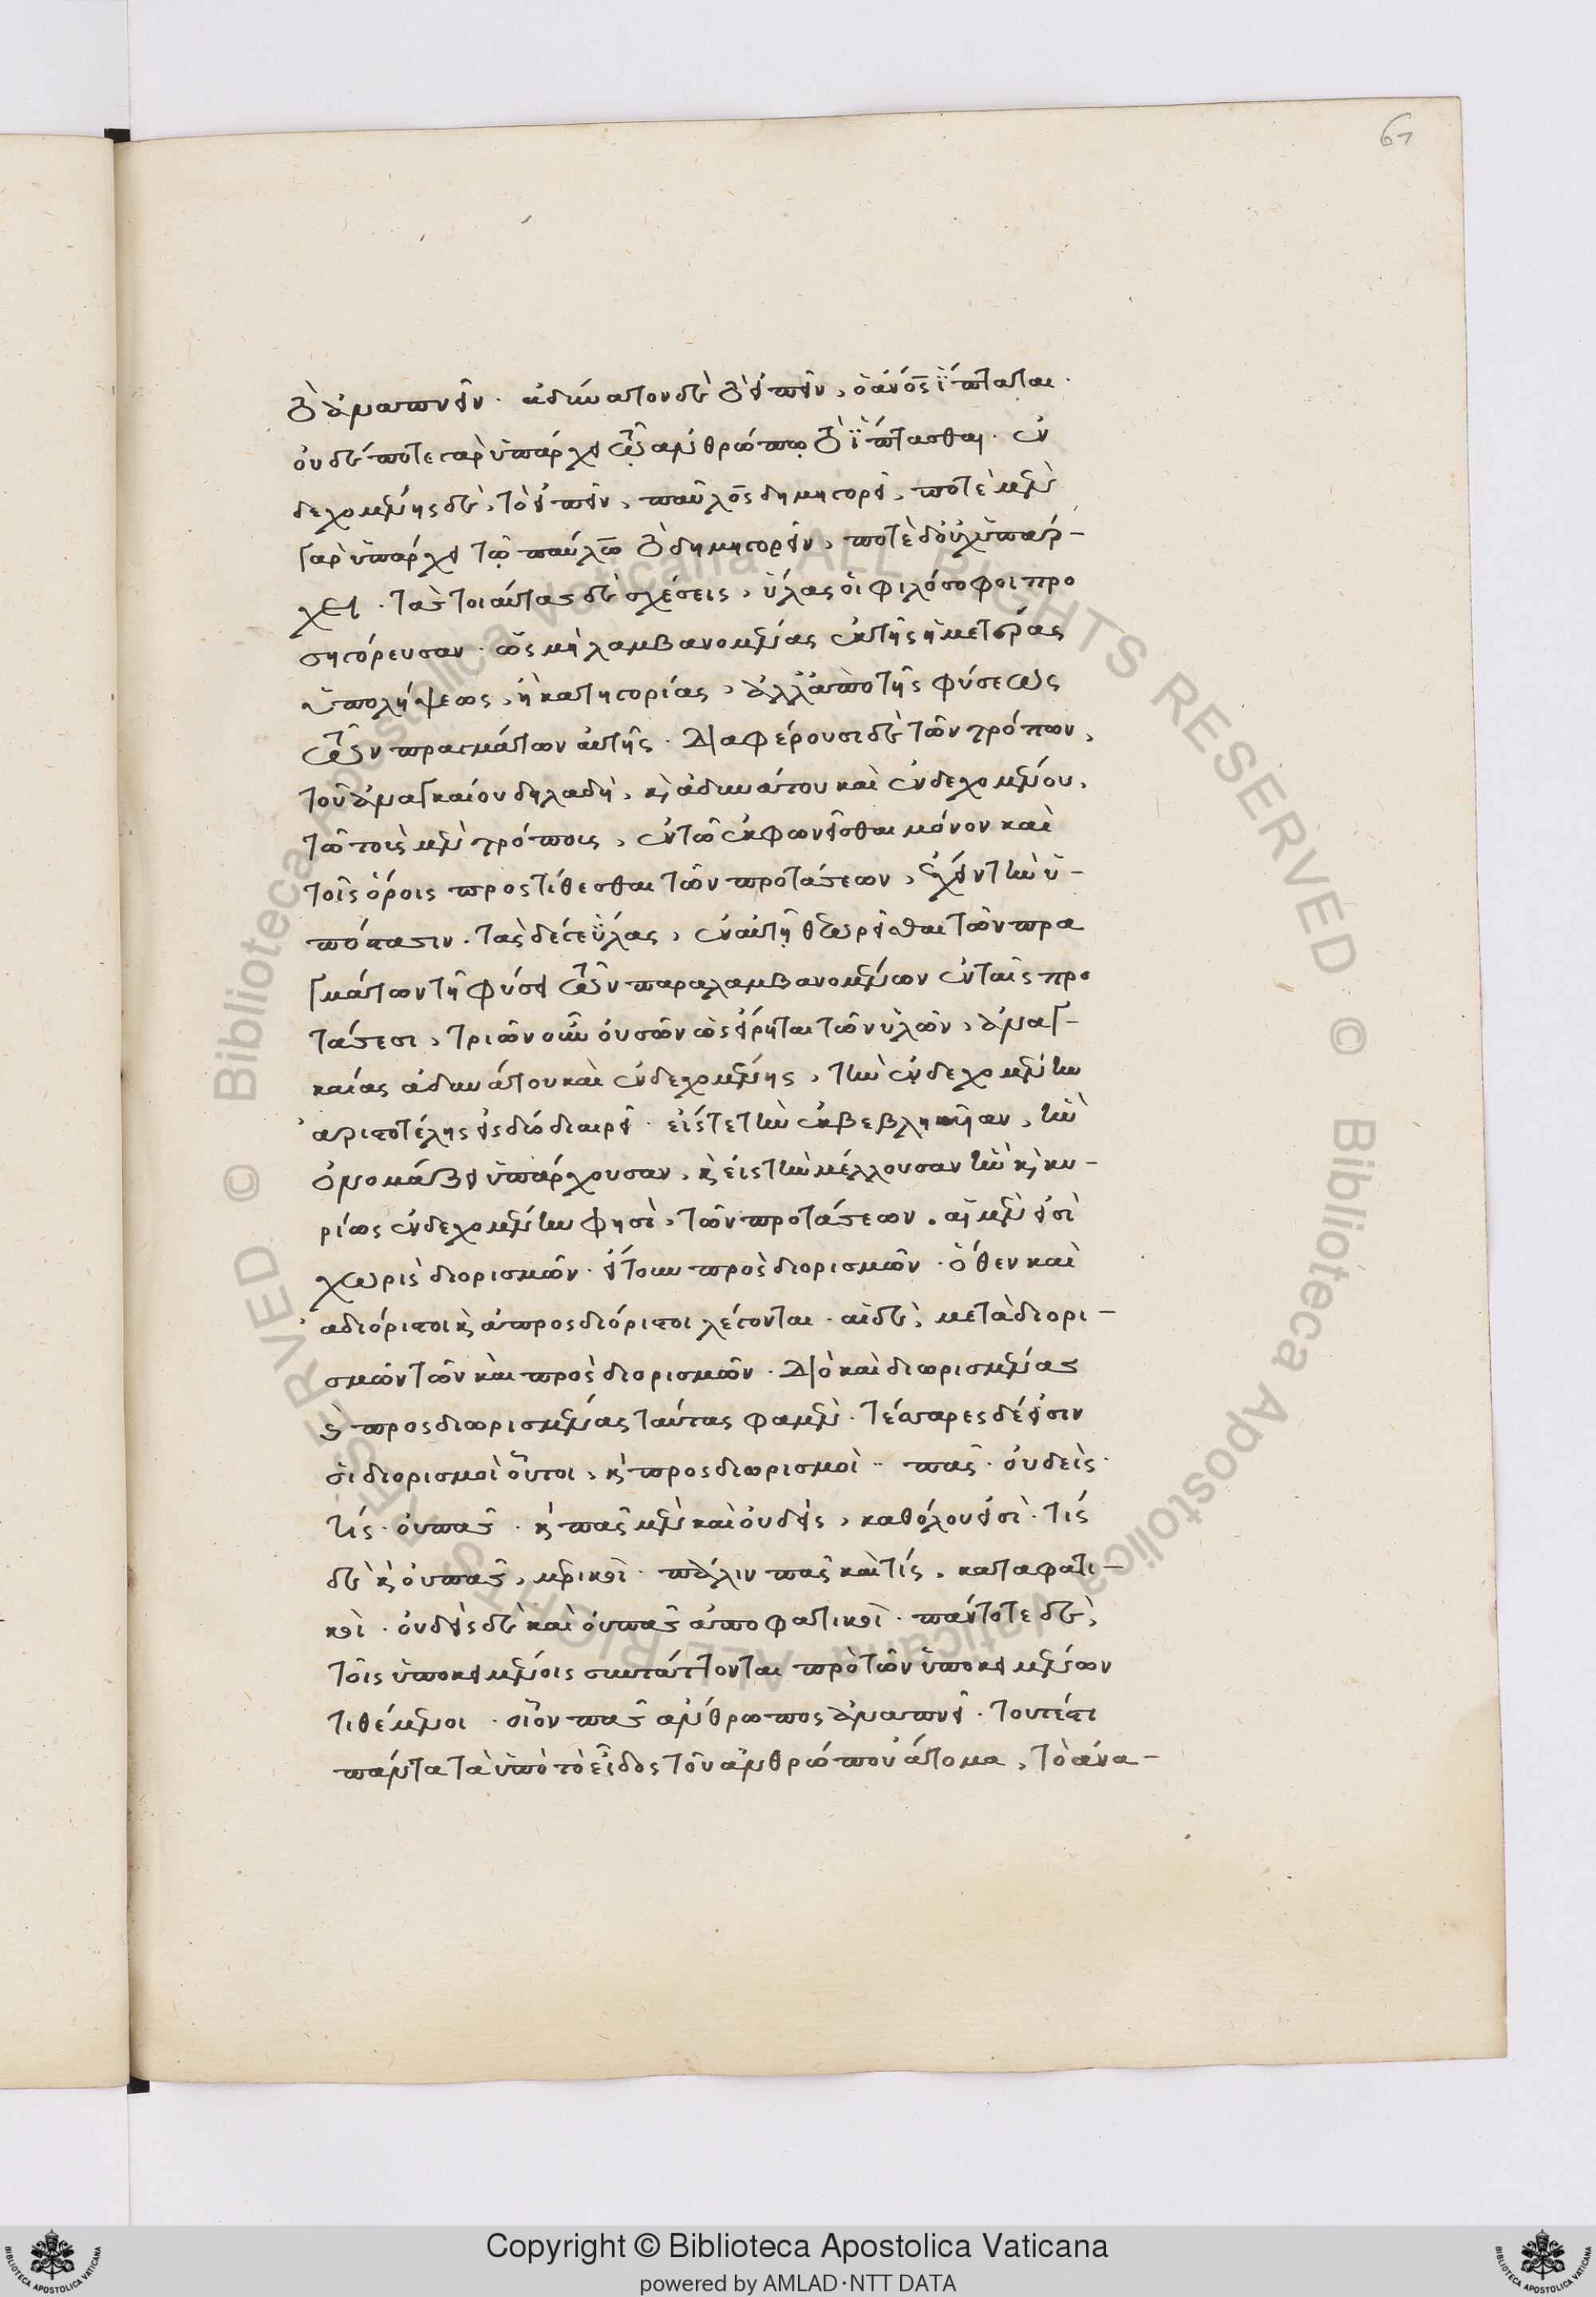 67
τὸ ἀναπνεῖν. ἀδύνατον δὲ τὸ εἰπεῖν, ὁ ἄνος ἵπταται.
οὐδέποτε γὰρ ὑπάρχει τῷ ἀνθρώπῳ τὸ ἵπτασθαι. ἐν
δεχομένης δὲ, τὸ εἰπεῖν, παῦλος δημηγορεῖ, ποτὲ μὲν
γὰρ ὑπάρχει τῷ παύλῳ τὸ δημηγορεῖν, ποτὲ δ' οὐχ ὑπάρ-
χει. τὰς τοιαύτας δὲ σχέσεις, ὕλας οἱ φιλόσοφοι προ
σηγόρευσαν. ὡς μὴ λαμβανομένας ἐκ τῆς ἡμετέρας
ὑπολήψεως, ἢ κατηγορίας, ἀλλ' ἀπὸ τῆς φύσεως
τῶν πραγμάτων αὐτῆς. Διαφέρουσι δὲ τῶν τρόπων,
τοῦ ἀναγκαίου δηλαδὴ, κ ἀδυνάτου καὶ ἐνδεχομένου,
τῷ τοὺς μὲν τρόπους, ἐν τῷ ἐκφωνεῖσθαι μόνον καὶ
τοῖς ὅροις προστίθεσθαι τῶν προτάσεων, ἔχειν τὴν ὑ-
πόστασιν. τὰς δέ γε ὕλας, ἐν αὐτῇ θεωρεῖσθαι τῶν πρα
γμάτων τῇ φύσει τῶν παραλαμβανομένων ἐν ταῖς προ
τάσεσι, τριῶν οὖν οὐσῶν ὡς εἴρηται τῶν ὑλῶν, ἀναγ-
καίας ἀδυνάτου καὶ ἐνδεχομένης, τὴν ἐνδεχομένην
ἀριστοτέλης εἰς δύο διαιρεῖ. εἴς τε τὴν ἐκβεβληκυῖαν, ἣν
ὀνομάζει ὑπάρχουσαν, κ εἰς τὴν μέλλουσαν ἣν κ κυ-
ρίως ἐνδεχομένην φησὶ, τῶν προτάσεων. αἱ μὲν εἰσὶ
χωρὶς διορισμῶν. εἴτουν προσδιορισμῶν. ὅθεν καὶ
ἀδιόριστοι κ ἀπροσδιόριστοι λέγονται. αἱ δὲ, μετὰ διορι-
σμῶν τῶν καὶ προσδιορισμῶν. Διὸ καὶ διωρισμένας
κ προσδιωρισμένας ταύτας φαμὲν. τέσσαρες δέ εἰσιν
οἱ διορισμοὶ οὗτοι, κ προσδιωρισμοὶ·· πᾶς. οὐδεὶς.
τίς. οὐ πᾶς. κ πᾶς μὲν καὶ οὐδεὶς, καθόλου εἰσὶ. τίς
δὲ κ οὐ πᾶς, μερικοὶ. πάλιν πᾶς καὶ τίς, καταφατι-
κοὶ. οὐδεὶς δὲ καὶ οὐ πᾶς ἀποφατικοὶ. πάντοτε δὲ,
τοῖς ὑποκειμένοις συντάττονται πρὸ τῶν ὑποκειμένων
τιθέμενοι. οἷον πᾶς ἄνθρωπος ἀναπνεῖ. τουτέστι
πάντα τὰ ὑπὸ τὸ εἶδος τοῦ ἀνθρώπου ἄτομα, τὸ ἀνα-
Copyright © Biblioteca Apostolica Vaticana
powered by AMLAD·NTT DATA
Biblioteca Apostolica Vaticana ALL RIGHTS RESERVED ©